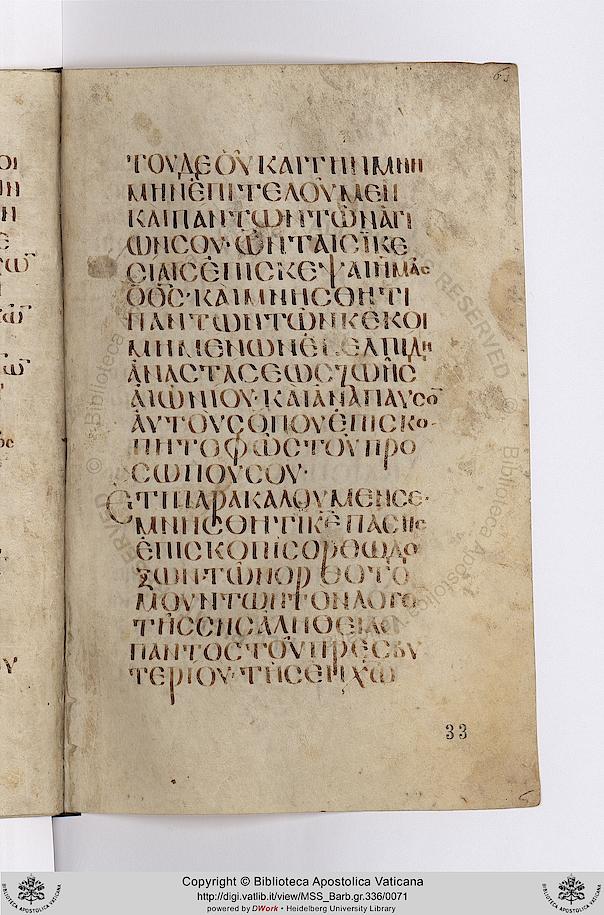 ΤΟΥΔΕΟΥ ΚΑΙΤΗΝΜΝΗ
ΜΗΝΕΠΙΤΕΛΟΥΜΕΝ
ΚΑΙΠΑΝΤΩΝΤΩΝΑΓΙ
ΩΝΣΟΥ· ΩΝΤΑΙΣΙΚΕ
ΣΙΑΙΣΕΠΙΣΚΕΨΑΙΗΜΑΣ
ΟΘΣ· ΚΑΙΜΝΗΣΘΗΤΙ
ΠΑΝΤΩΝΤΩΝΚΕΚΟΙ
ΜΗΜΕΝΩΝΕΠΕΛΠΙΔΙ
ΑΝΑΣΤΑΣΕΩΣΖΩΗΣ
ΑΙΩΝΙΟΥ· ΚΑΙΑΝΑΠΑΥΣΟ
ΑΥΤΟΥΣΟΠΟΥΕΠΙΣΚΟ
ΠΗΤΟΦΩΣΤΟΥΠΡΟ
ΣΩΠΟΥΣΟΥ·
ΕΤΙΠΑΡΑΚΑΛΟΥΜΕΝΣΕ·
ΜΝΗΣΘΗΤΙΚΕΠΑΣΗΣ
ΕΠΙΣΚΟΠΙΣΟΡΘΟΔΟ
ΞΩΝ· ΤΩΝΟΡΘΟΤΟ
ΜΟΥΝΤΩΝΤΟΝΛΟΓΟ
ΤΗΣΣΗΣΑΛΗΘΕΙΑΣ
ΠΑΝΤΟΣΤΟΥΠΡΕΣΒΥ
ΤΕΡΙΟΥ· ΤΗΣΕΝΧΩ
33
Copyright © Biblioteca Apostolica Vaticana
http://digi.vatlib.it/view/MSS_Barb.gr.336/0071
powered by DWork • Heidelberg University Library